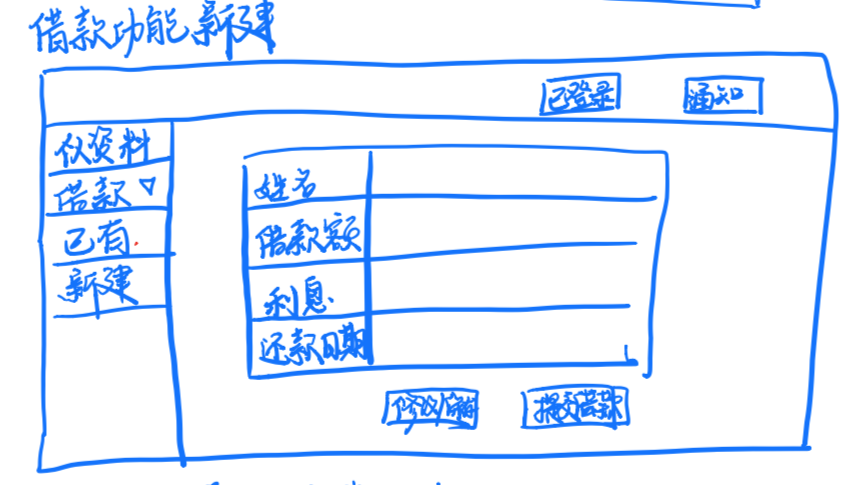 借款功能新建
已登录
通知
资料
借款
已有
新建
姓名
借款额
利息
还款日期
提交借款